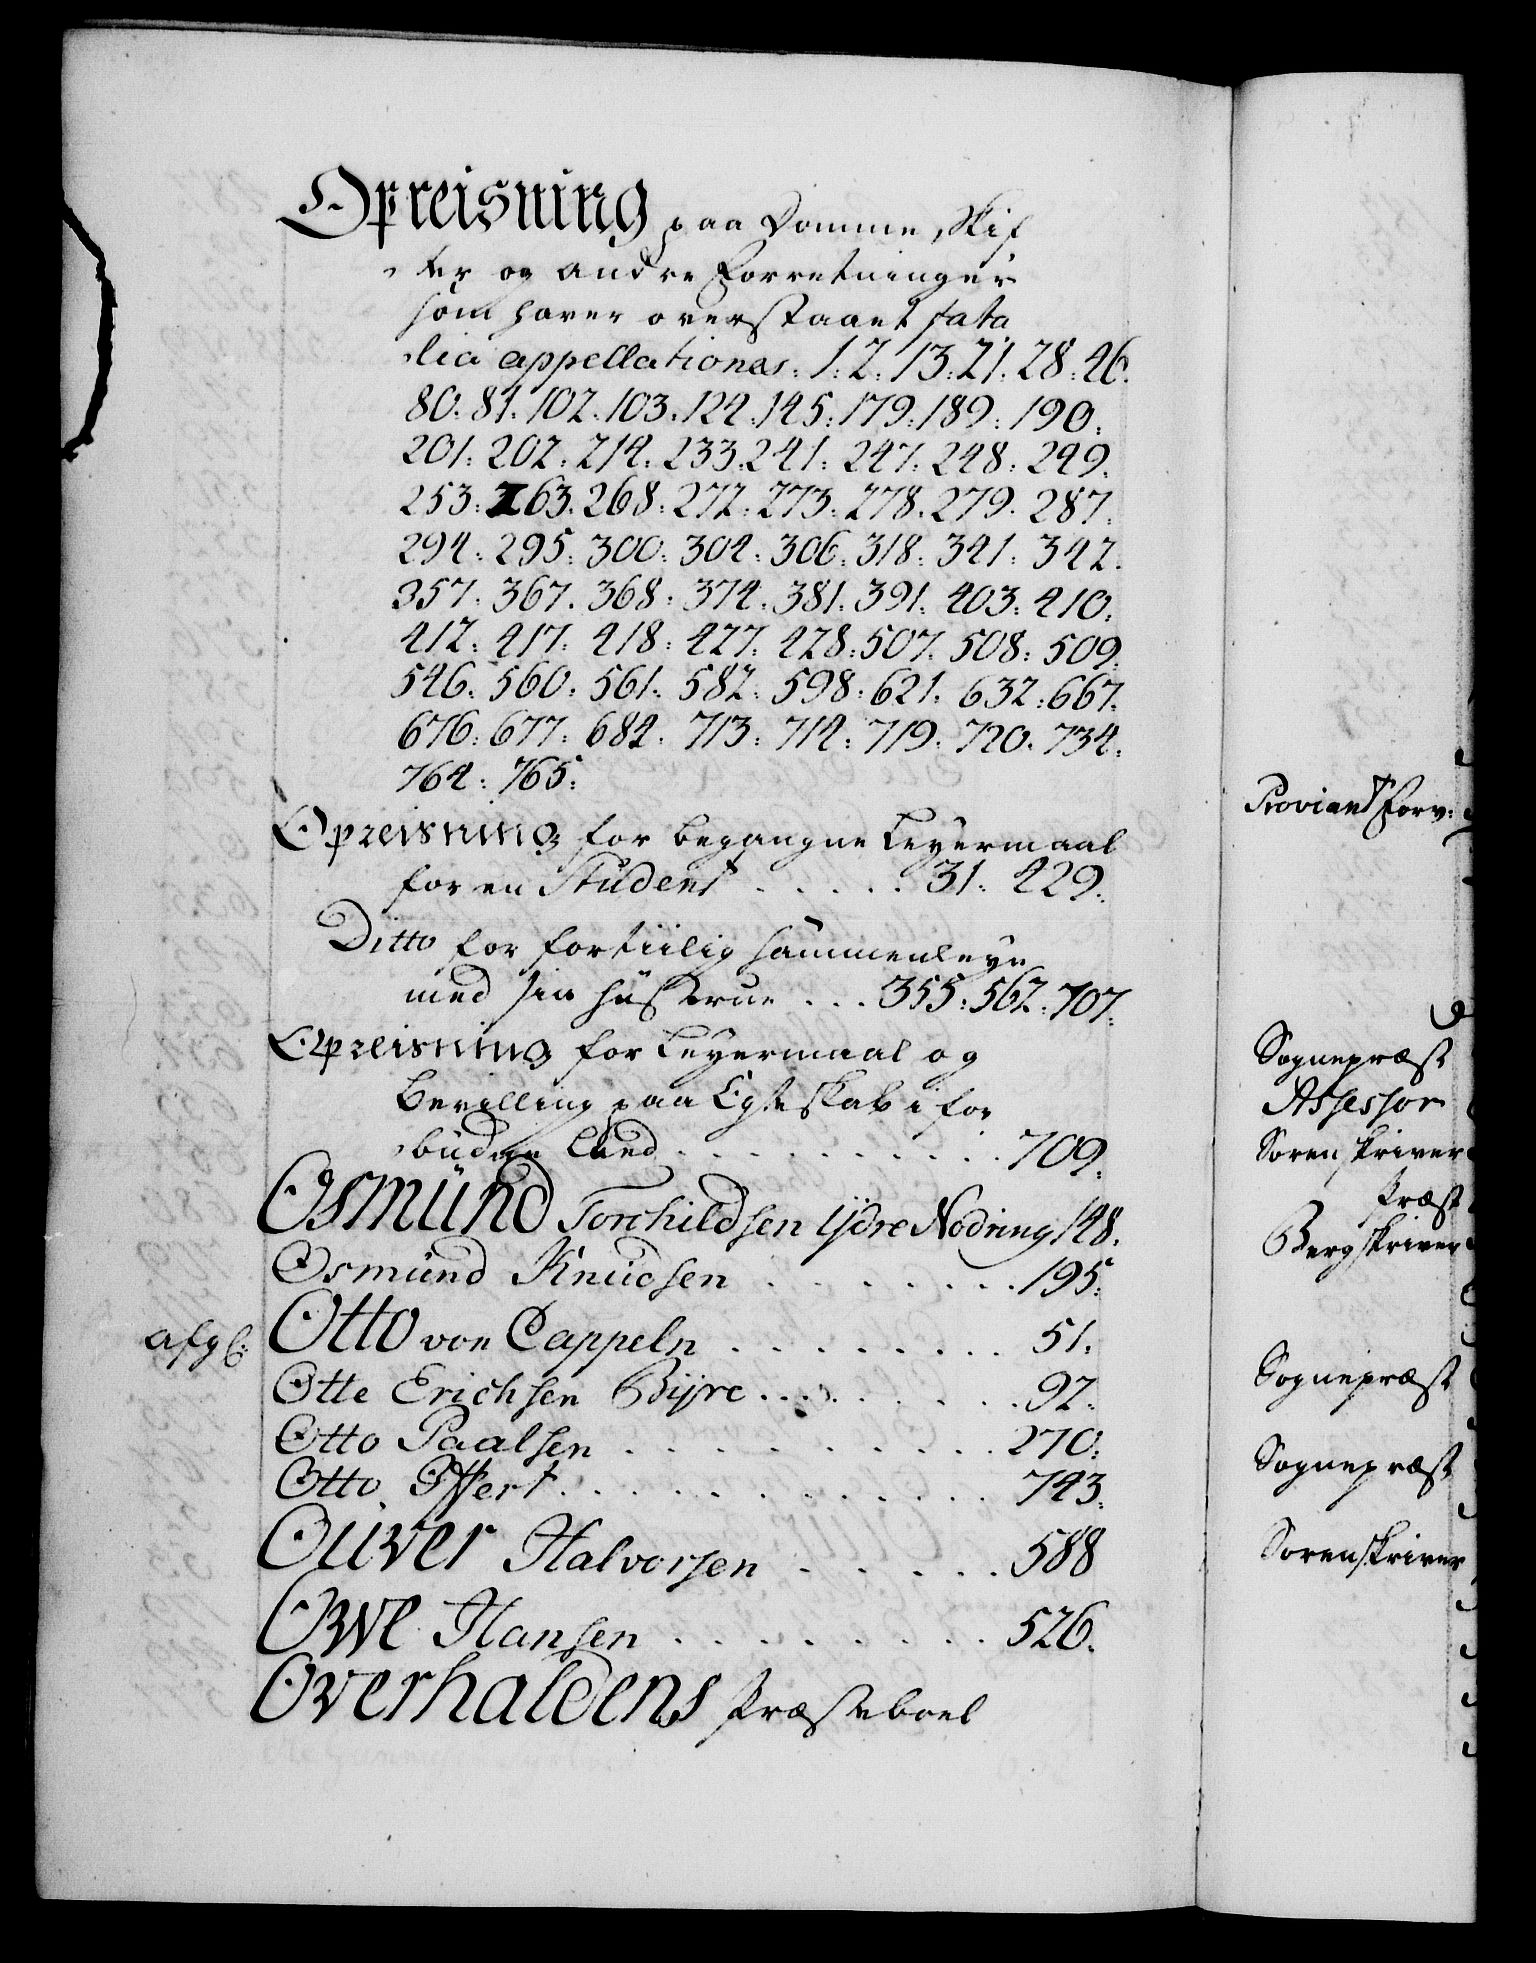 Opreisning paa Domme, Skif
ter og andre Forretninger
som haver overstaaet fata
lia appellationes. 1: 2: 13: 21: 28: 46.
80: 81: 102: 103: 124: 145: 179: 189: 190:
201: 202: 214: 233: 241: 247: 248: 249:
253: 263: 268: 272: 273: 278: 279: 287:
294: 295: 300: 304: 306: 318: 341: 342.
357: 367: 368: 374: 381: 391: 403: 410:
412: 417: 418: 427: 428: 507: 508: 509:
546: 560: 561: 582: 598: 621: 632: 667:
676: 677: 684: 713: 714: 719: 720: 734:
764: 765:
Opreisning for begangne Leyermaal
for en Student . . . . . 31: 429:
Ditto for fortiilig sammenleye
med sin Hustrue . . . 355: 562: 707:
Opreisning for Leyermaal og
Bevilling paa Egteskab i for
budne Leed . . . . . . . . . . 709:
Osmünd Torchildsen Ydre Nodring 148.
Osmünd Knudsen . . . . . . . 195:
afg: Otto von Cappeln . . . . . . . . . 51.
Otte Erichsen Bÿre . . . . . . . . 92.
Otto Paalsen . . . . . . . . . . 270:
Otto Offert . . . . . . . . . . . . . 743:
Ouver Halvorsen . . . . . 588
Owe Hansen . . . . . . . . . 526.
Overhaldens Præsteboel
Proviant Forv:
Sognepræst
Assessor
Sorenskriver
Præst
Bergskriver
Sognepræst
Sognepræst
Sorenskriver